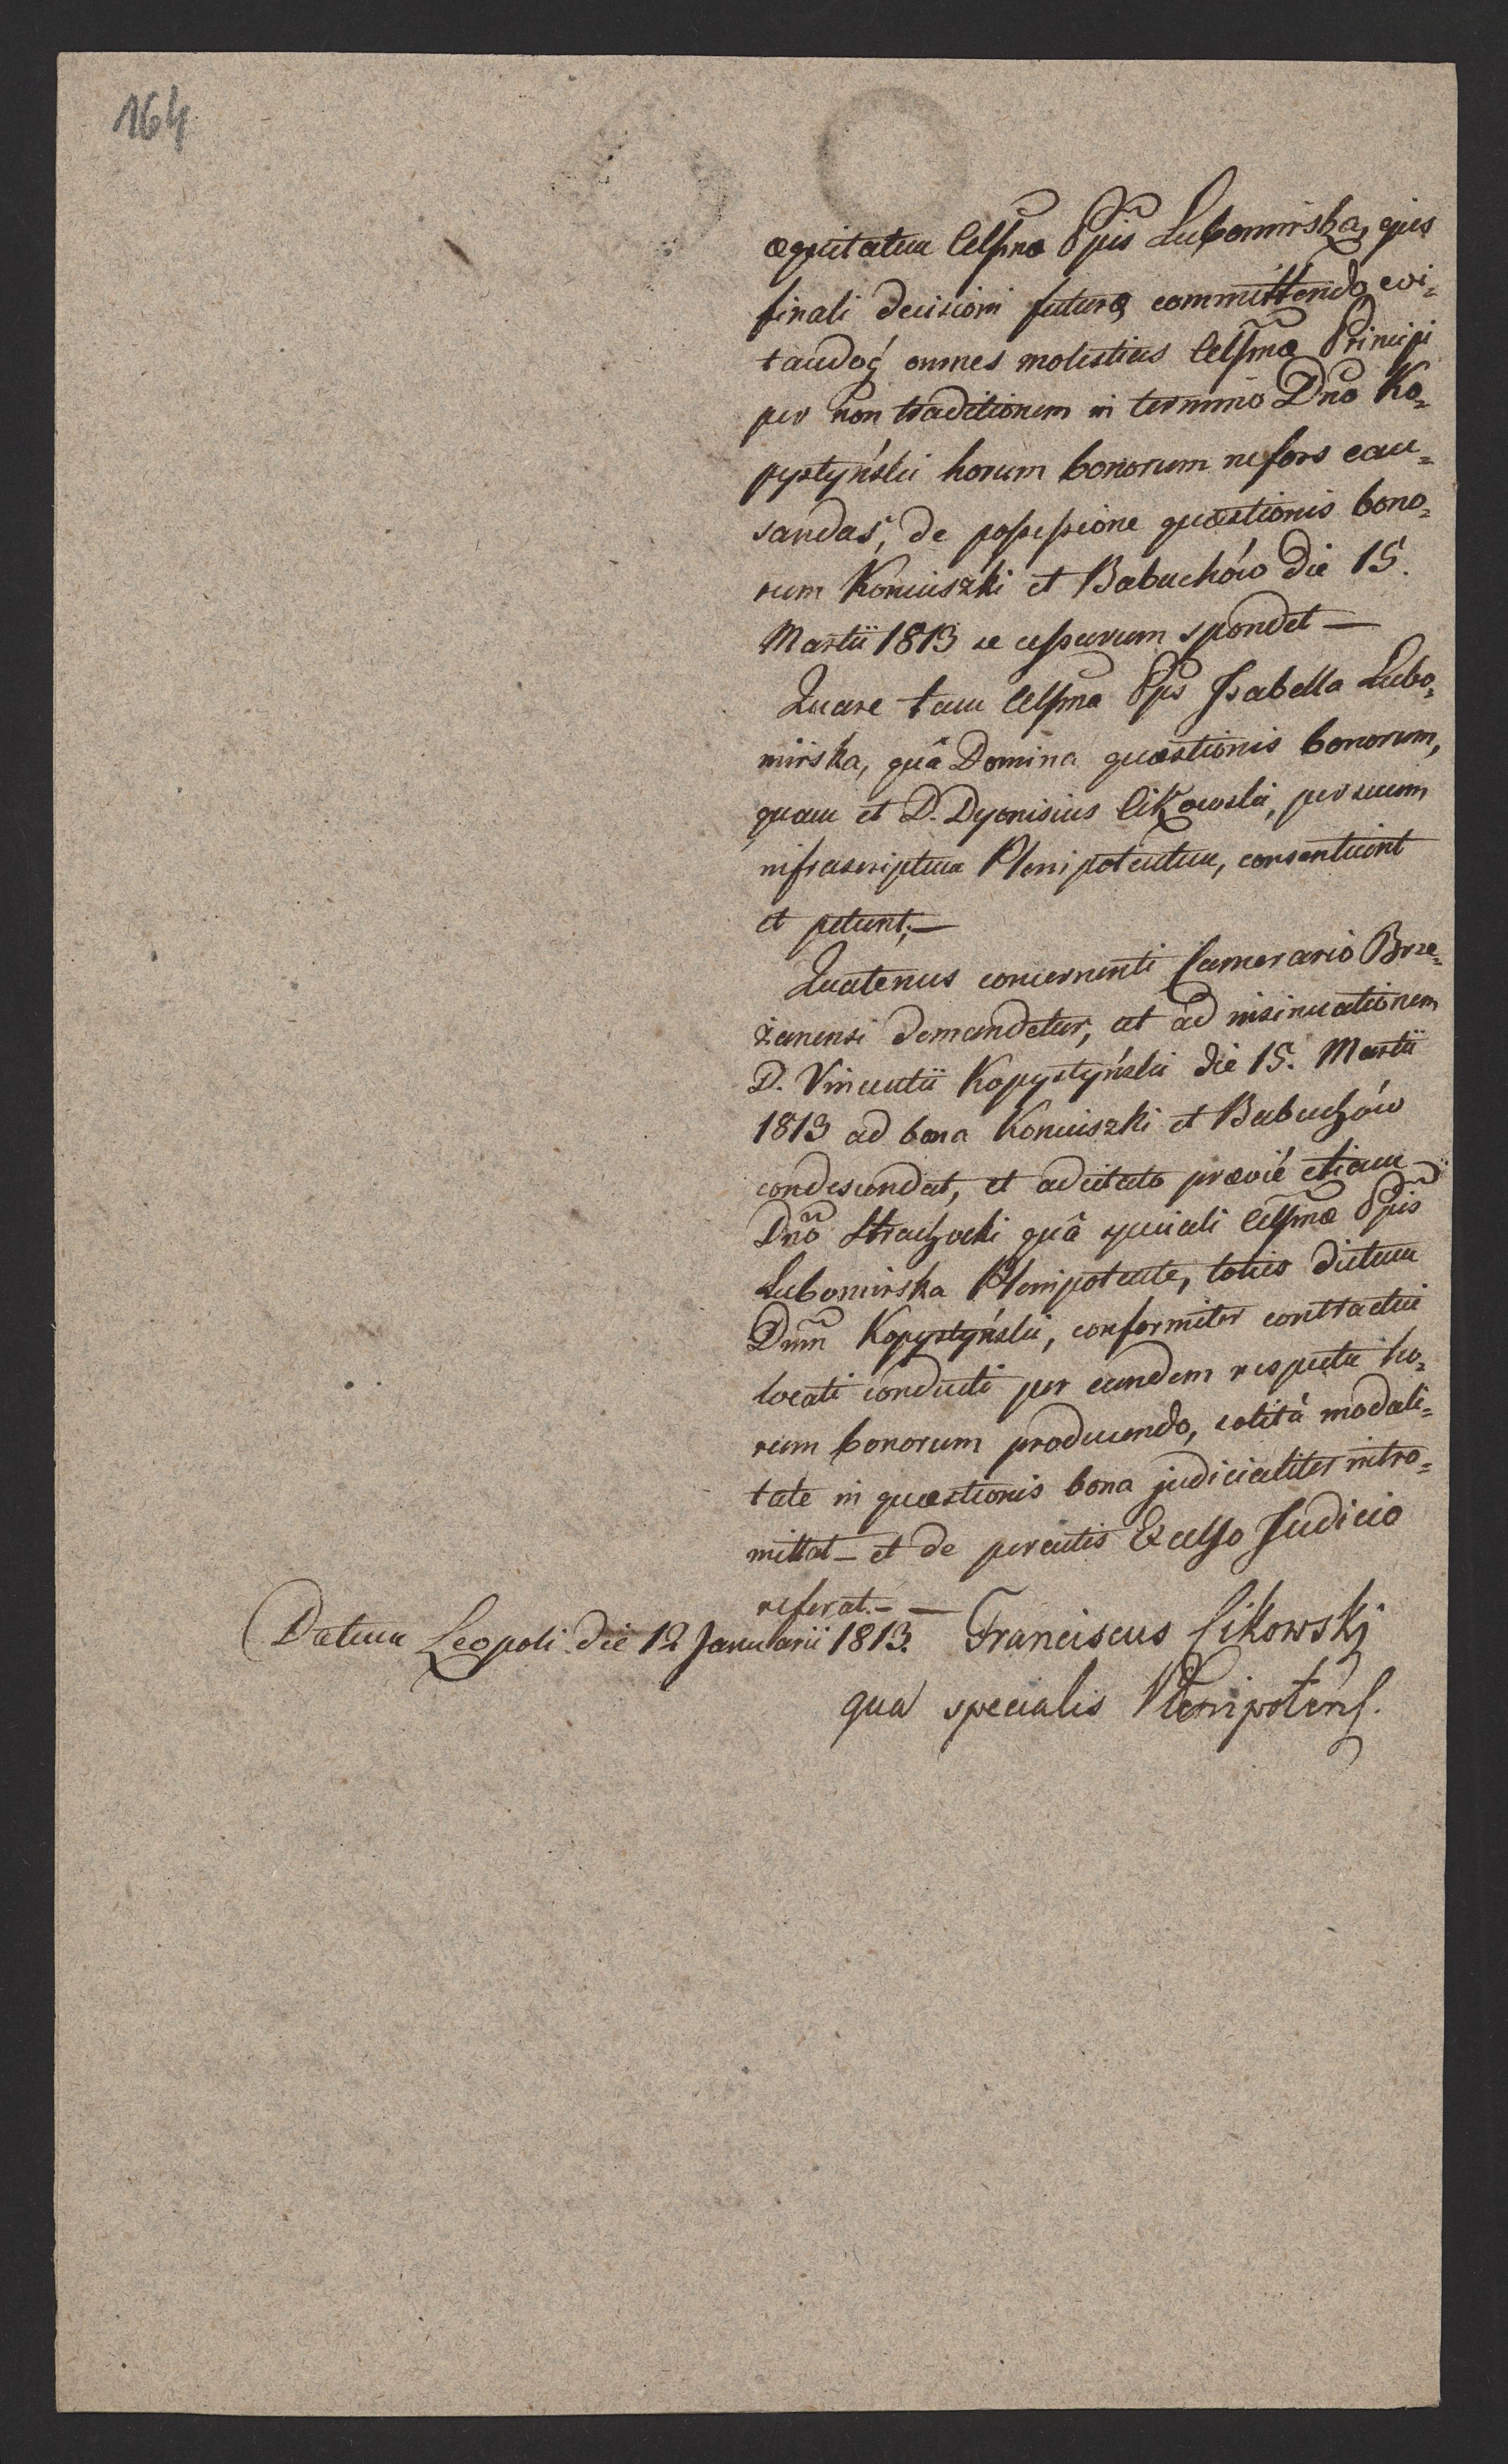 164
æquitatem Celsmæ Ppis Lubomirska, ejus
finali decisioni futuræ committendo, evi=
tandoq omnes molestias Celsmæ Principi
per non traditionem in termino Dno Ko=
pystyński horum bonorum nefors cau=
sandas, de possessione quæstionis bono=
rum Koniuszki et Babuchów die 15.
Martii 1813 se cessurum spondet —
Quare tam Celsma Pps Isabella Lubo=
mirska, quâ Domina quæstionis bonorum,
quam et D. Dyonisius Cikowski, per suum
infrascriptum Plenipotentem, consentiunt
et petunt; —
Quatenus concernenti Camerario Brze=
żanensi demandetur, ut ad insinuationem
D. Vincentii Kopystyński die 15. Martii
1813 ad bona Koniuszki et Babuchów
condescendat, et adcitato prævié etiam
Dnō Strachocki quâ speciali Celsmæ Ppis
Lubomirska Plenipotente, toties dictum
Dnm Kopystyński, conformiter contractui
locati conducti per eundem respectu ho=
rum bonorum producendo, solitâ modali=
tate in quæstionis bona judicialiter intro=
mittat — et de peractis Excelso Judicio
referat. — —
Datum Leopoli die 12 Januarii 1813. Franciscus Cikowski
qua specialis Plenipotens.